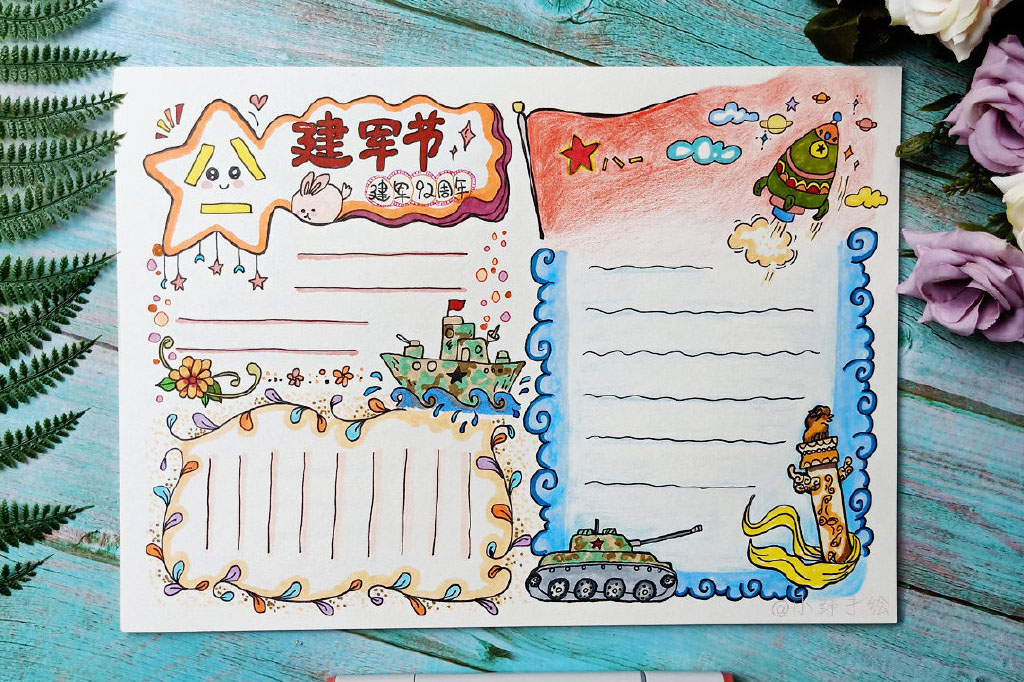 八一
建军节
建军92周年
八一
@小轩手绘